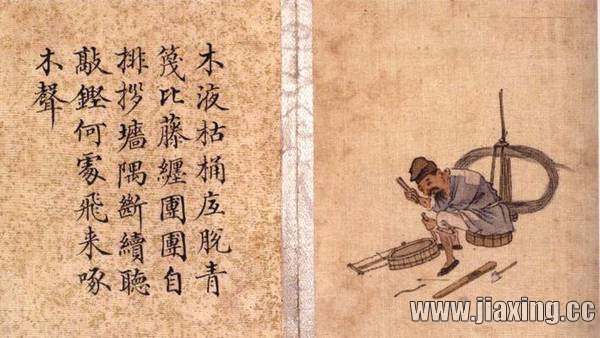 木液枯桶底脫青
篾比藤纏團團自
排拶墻隅斷續聽
敲鏗何處飛来啄
木聲
www.jiaxing.cc